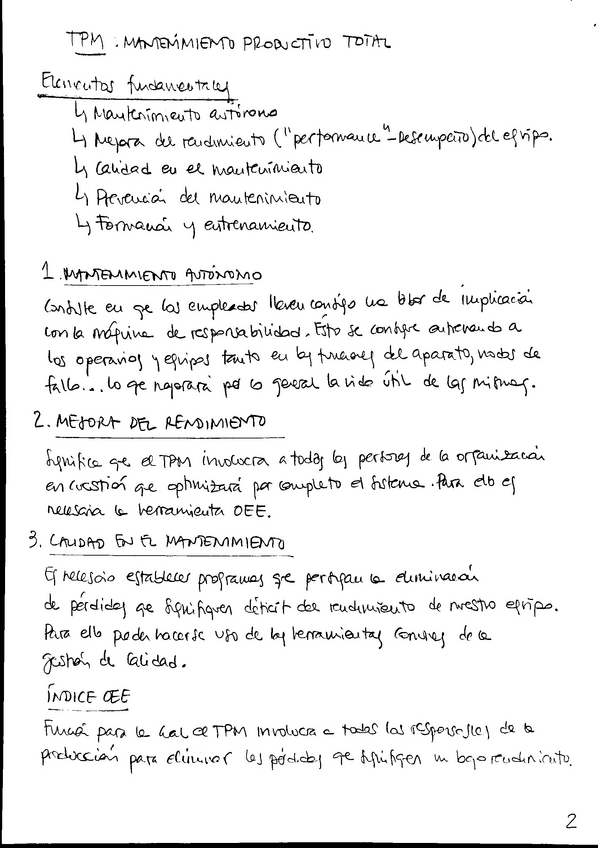 TPM : MANTENIMIENTO PRODUCTIVO TOTAL
Elementos fundamentales
↳ Mantenimiento autónomo
↳ Mejora del rendimiento ("performance"-Desempeño) del equipo.
↳ Calidad en el mantenimiento
↳ Prevención del mantenimiento
↳ Formación y entrenamiento.
1. MANTENIMIENTO AUTÓNOMO
Consiste en qe los empleados lleven consigo una labor de implicación
con la máquina de responsabilidad. Esto se consigue entrenando a
los operarios y equipos tanto en las funciones del aparato, modos de
fallo... lo qe mejorará por lo general la vida útil de las mismas.
2. MEJORA DEL RENDIMIENTO
Significa qe el TPM involucra a todas las personas de la organización
en cuestión qe optimizará por completo el sistema. Para ello es
necesaria la herramienta OEE.
3. CALIDAD EN EL MANTENIMIENTO
Es necesario establecer programas qe persigan la eliminación
de pérdidas qe signifiquen déficit del rendimiento de nuestro equipo.
Para ello puede hacerse uso de las herramientas comunes de la
gestión de calidad.
ÍNDICE OEE
Función para la cual el TPM involucra a todos los responsables de la
producción para eliminar las pérdidas qe signifiquen un bajo rendimiento.
2